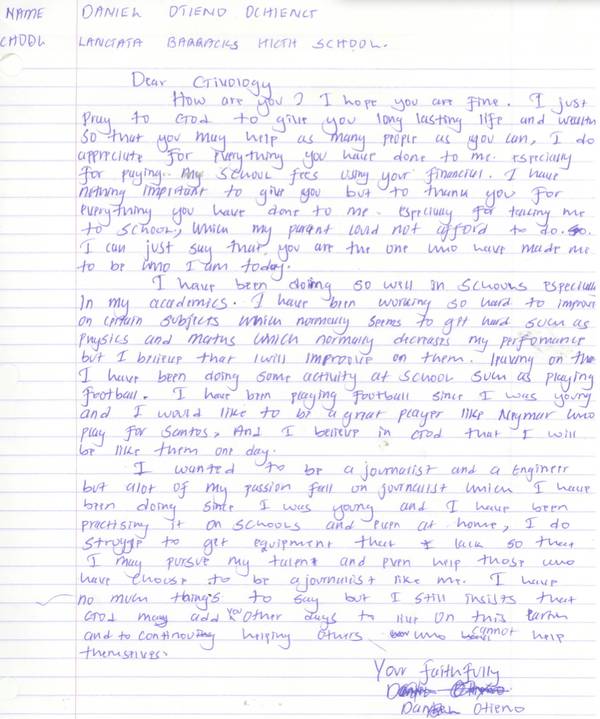 NAME DANIEL OTIENO OCHIENG
CHOOL LANGTATA BARRACKS HIGTH SCHOOL.
Dear Givology
How are you? I hope you are fine. I just
Pray to God to give you long lasting life and wealth
so that you may help as many people as you can, I do
appreciate for everything you have done to me. especially
for paying my school fees using your financial. I have
nothing important to give you but to thank you for
everything you have done to me. especially for taking me
to school, which my parent could not afford to do.
I can just say that you are the one who have made me
to be who I am today.
I have been doing so well in schools especially
In my academics. I have been working so hard to improve
on certain subjects which normally seems to get hard such as
physics and maths which normaly decreases my perfomance
but I believe that I will improve on them. leaving on the
I have been doing some activity at school such as playing
football. I have been playing football since I was young
and I would like to be a great player like Neymar who
play for Santos, And I believe in God that I will
be like them one day.
I wanted to be a journalist and a Engineer
but alot of my passion fall on journalist which I have
been doing since I was young and I have been
practising it on schools and even at home, I do
struggle to get equipment that I lack so that
I may pursue my talent and even help those who
have choose to be a journalist like me. I have
no much things to say but I still insists that
God may add you other days to live on this Earth
and to continou helping others who cannot help
themselves.
Your faithfully
Daniel Otieno